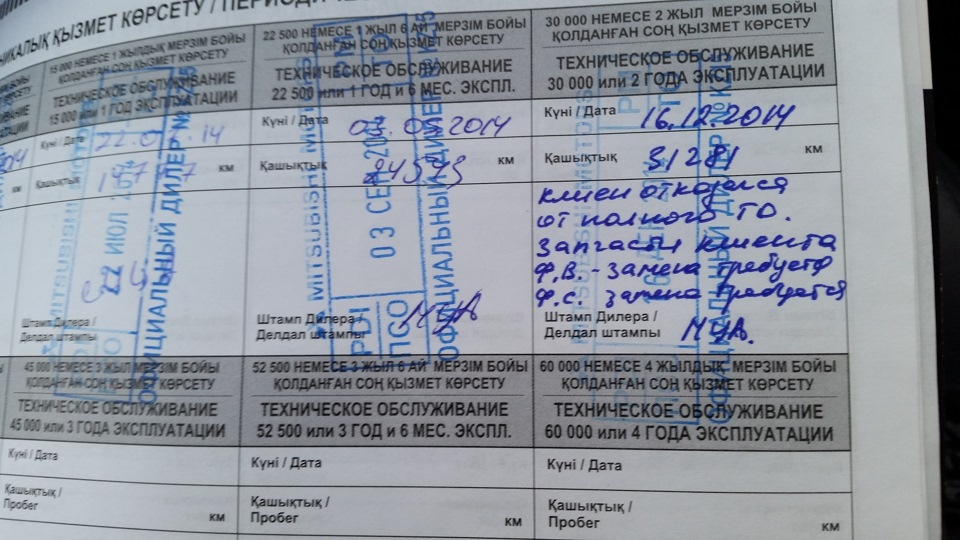 НИКАЛЫҚ ҚЫЗМЕТ КӨРСЕТУ / ПЕРИОДИЧЕ
15 000 НЕМЕСЕ 1 ЖЫЛДЫҚ МЕРЗІМ БОЙЫ
ҚОЛДАНҒАН СОҢ ҚЫЗМЕТ КӨРСЕТУ
ТЕХНИЧЕСКОЕ ОБСЛУЖИВАНИЕ
15 000 или 1 ГОД ЭКСПЛУАТАЦИИ
Күні / Дата
Қашықтық
км
Штамп Дилера /
Делдал штампы
MITSUBISHI
22 ИЮЛ
ОФИЦИАЛЬНЫЙ ДИЛЕР
22 500 НЕМЕСЕ 1 ЖЫЛ 6 АЙ МЕРЗІМ БОЙЫ
ҚОЛДАНҒАН СОҢ ҚЫЗМЕТ КӨРСЕТУ
ТЕХНИЧЕСКОЕ ОБСЛУЖИВАНИЕ
22 500 или 1 ГОД и 6 МЕС. ЭКСПЛ.
Күні / Дата 03.09.2014
Қашықтық 24573 км
Штамп Дилера /
Делдал штампы
MITSUBISHI
03 СЕН 2014
PDI
ПСО
ОФИЦИАЛЬНЫЙ ДИЛЕР
30 000 НЕМЕСЕ 2 ЖЫЛ МЕРЗІМ БОЙЫ
ҚОЛДАНҒАН СОҢ ҚЫЗМЕТ КӨРСЕТУ
ТЕХНИЧЕСКОЕ ОБСЛУЖИВАНИЕ
30 000 или 2 ГОДА ЭКСПЛУАТАЦИИ
Күні / Дата 16.12.2014
Қашықтық 31281 км
клиен отказался
от полного ТО.
Запчасти клиента
Ф.В. - замена требуется
Ф.С. замена требуется
Штамп Дилера /
Делдал штампы
45 000 НЕМЕСЕ 3 ЖЫЛ МЕРЗІМ БОЙЫ
ҚОЛДАНҒАН СОҢ ҚЫЗМЕТ КӨРСЕТУ
ТЕХНИЧЕСКОЕ ОБСЛУЖИВАНИЕ
45 000 или 3 ГОДА ЭКСПЛУАТАЦИИ
Күні / Дата
Қашықтық /
Пробег
км
52 500 НЕМЕСЕ 3 ЖЫЛ 6 АЙ МЕРЗІМ БОЙЫ
ҚОЛДАНҒАН СОҢ ҚЫЗМЕТ КӨРСЕТУ
ТЕХНИЧЕСКОЕ ОБСЛУЖИВАНИЕ
52 500 или 3 ГОД и 6 МЕС. ЭКСПЛ.
Күні / Дата
Қашықтық /
Пробег
км
60 000 НЕМЕСЕ 4 ЖЫЛДЫҚ МЕРЗІМ БОЙЫ
ҚОЛДАНҒАН СОҢ ҚЫЗМЕТ КӨРСЕТУ
ТЕХНИЧЕСКОЕ ОБСЛУЖИВАНИЕ
60 000 или 4 ГОДА ЭКСПЛУАТАЦИИ
Күні / Дата
Қашықтық /
Пробег
км